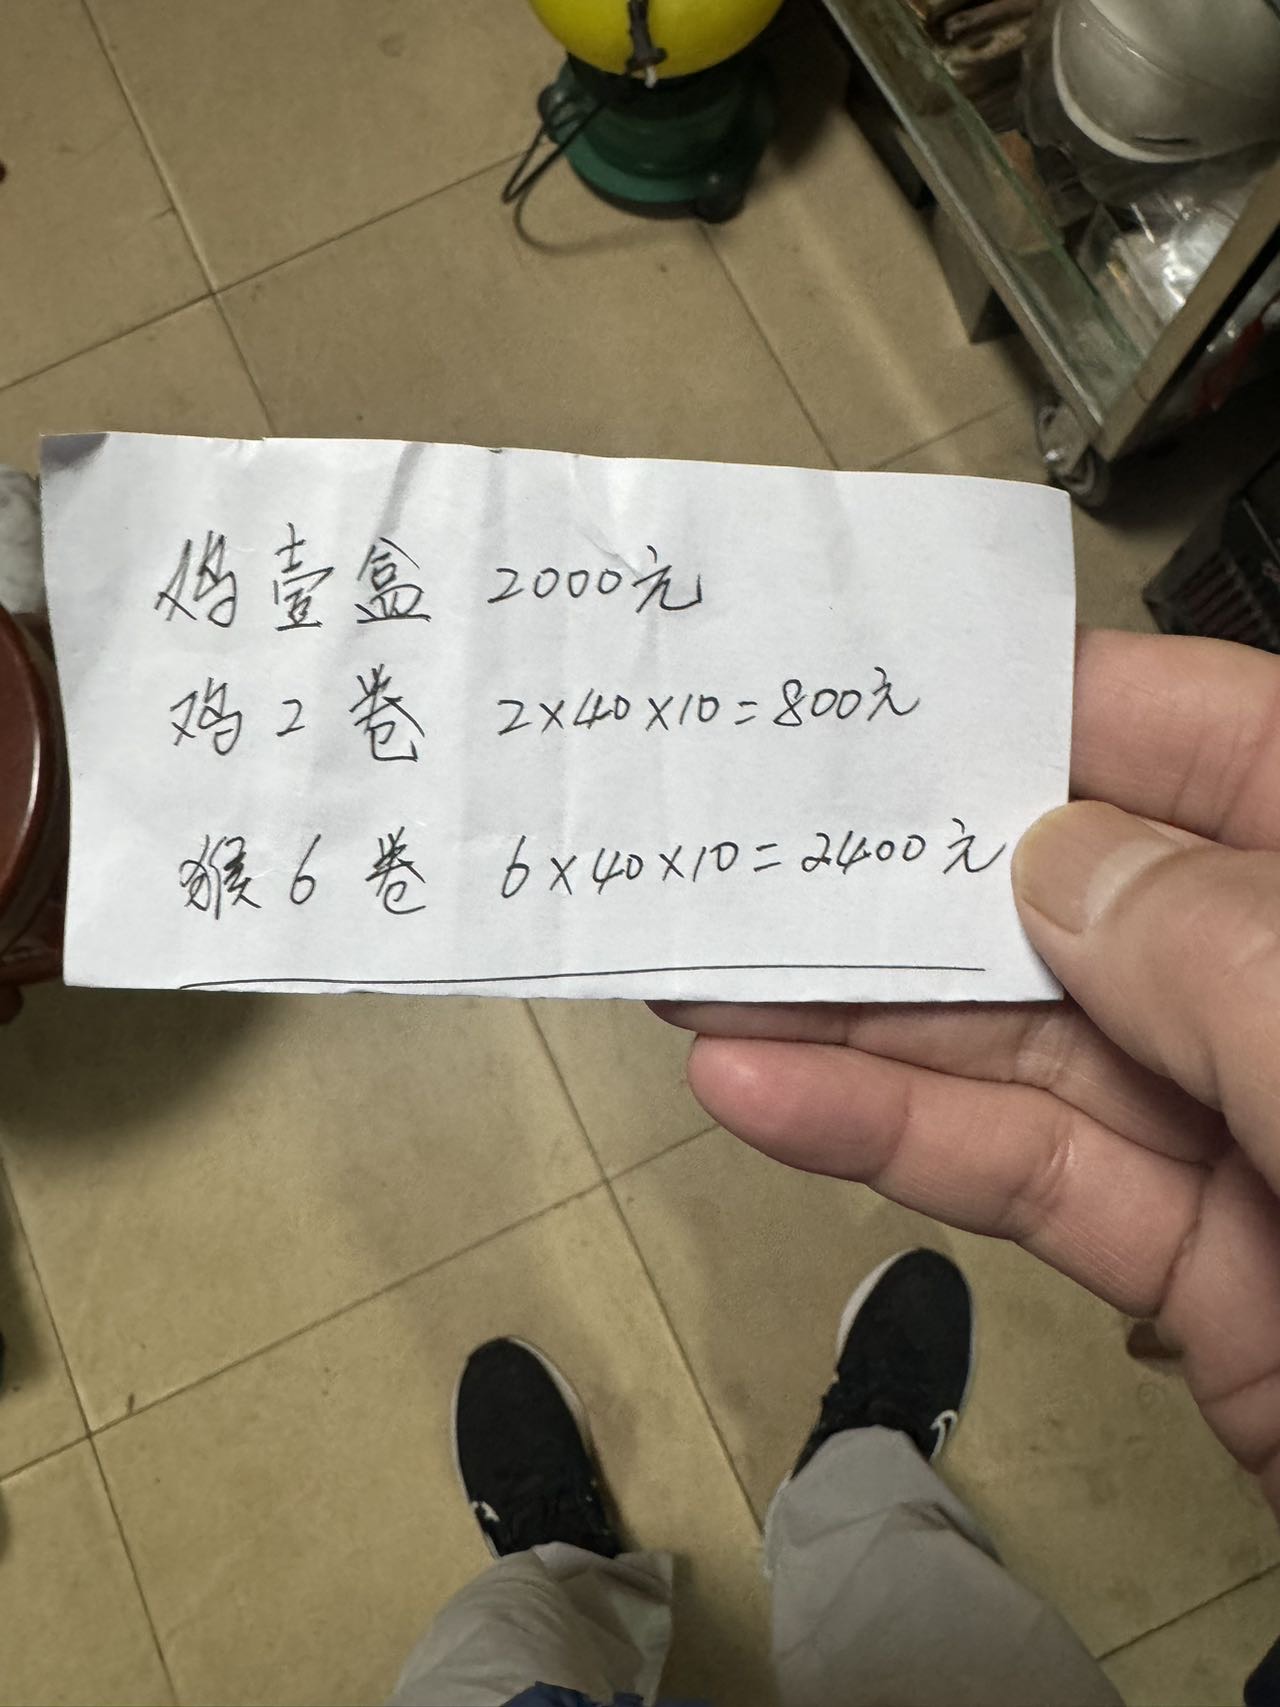 鸡壹盒 2000元
鸡2卷 2×40×10=800元
猴6卷 6×40×10=2400元